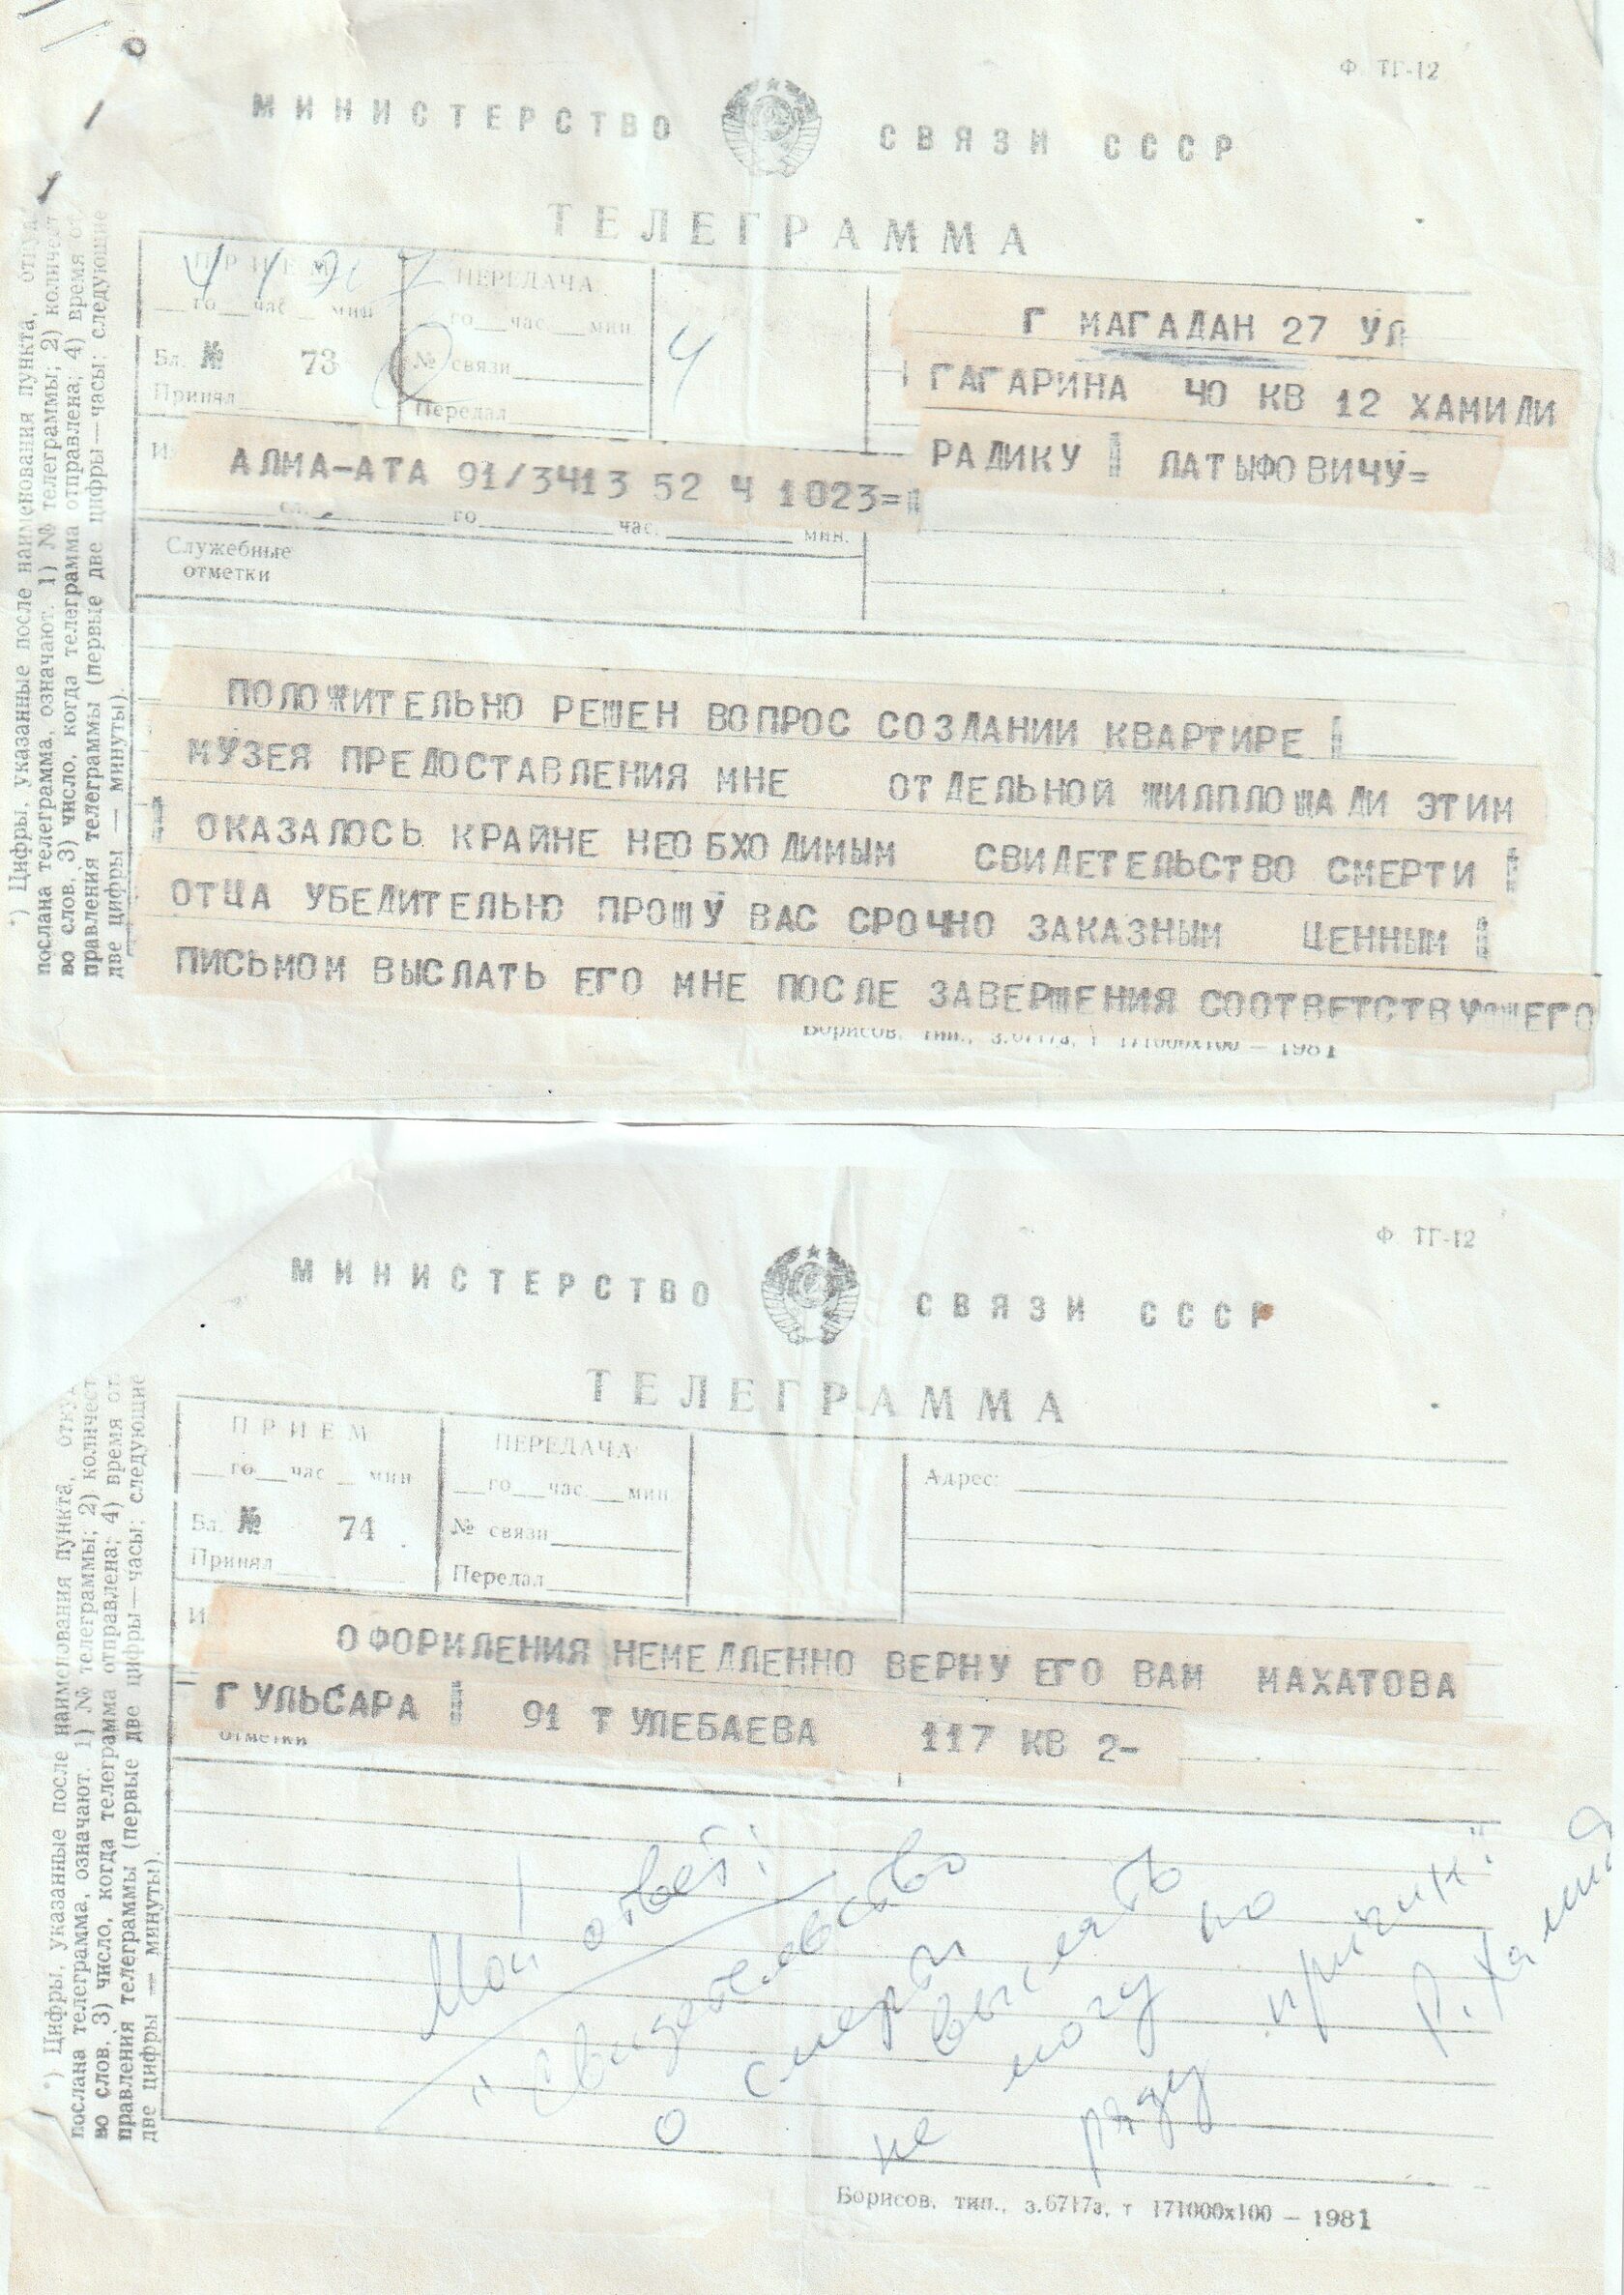 Ф. ТГ-12
МИНИСТЕРСТВО СВЯЗИ СССР
ТЕЛЕГРАММА
ПРИЕМ
го час мин
Бл. № 73
Принял
ПЕРЕДАЧА
го час. мин.
№ связи
Передал
4
Г МАГАДАН 27 УЛ
ГАГАРИНА 40 КВ 12 ХАМИДИ
РАДИКУ ЛАТЫФОВИЧУ=
АЛМА-АТА 91/3413 52 4 1023=
сл. го час. мин.
Служебные
отметки
ПОЛОЖИТЕЛЬНО РЕШЕН ВОПРОС СОЗДАНИИ КВАРТИРЕ
МУЗЕЯ ПРЕДОСТАВЛЕНИЯ МНЕ ОТДЕЛЬНОЙ ЖИЛПЛОШАДИ ЭТИМ
ОКАЗАЛОСЬ КРАЙНЕ НЕОБХОДИМЫМ СВИДЕТЕЛЬСТВО СМЕРТИ
ОТЦА УБЕДИТЕЛЬНО ПРОШУ ВАС СРОЧНО ЗАКАЗНЫМ ЦЕННЫМ
ПИСЬМОМ ВЫСЛАТЬ ЕГО МНЕ ПОСЛЕ ЗАВЕРШЕНИЯ СООТВЕТСТВУЮШЕГО
Борисов, тип., з.6717а, т 171000х100 — 1981
*) Цифры, указанные после наименования пункта,
послана телеграмма, означают. 1) № телеграммы; 2) количест
во слов, 3) число, когда телеграмма отправлена; 4) время от
правления телеграммы (первые две цифры — часы; следующие
две цифры — минуты).
Ф. ТГ-12
МИНИСТЕРСТВО СВЯЗИ СССР
ТЕЛЕГРАММА
ПРИЕМ
го час мин
Бл. № 74
Принял
ПЕРЕДАЧА
го час. мин.
№ связи
Передал
Адрес:
ОФОРМЛЕНИЯ НЕМЕДЛЕННО ВЕРНУ ЕГО ВАМ МАХАТОВА
ГУЛЬСАРА 91 ТУЛЕБАЕВА 117 КВ 2-
отметки
Мой ответ:
"Свидетельство
о смерти
выслать
не могу по
ряду причин".
Р. Хамиди
Борисов, тип., з.6717а, т 171000х100 — 1981
*) Цифры, указанные после наименования пункта, отку
послана телеграмма, означают. 1) № телеграммы; 2) количест
во слов, 3) число, когда телеграмма отправлена; 4) время от
правления телеграммы (первые две цифры — часы; следующие
две цифры — минуты).